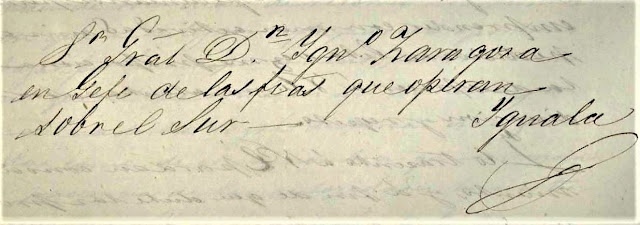 Sr. Gral D.n Ygn.o Zaragoza
en Gefe de las fzas que operan
sobre el Sur —
Yguala